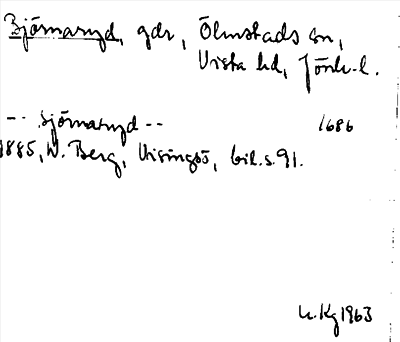 Björnaryd, gdr, Ölmstads sn,
Vista hd, Jönk. l.
-- Björnaryd -- 1686
1885, W. Berg, Visingsö, bil. s. 91.
u. Kg 1963